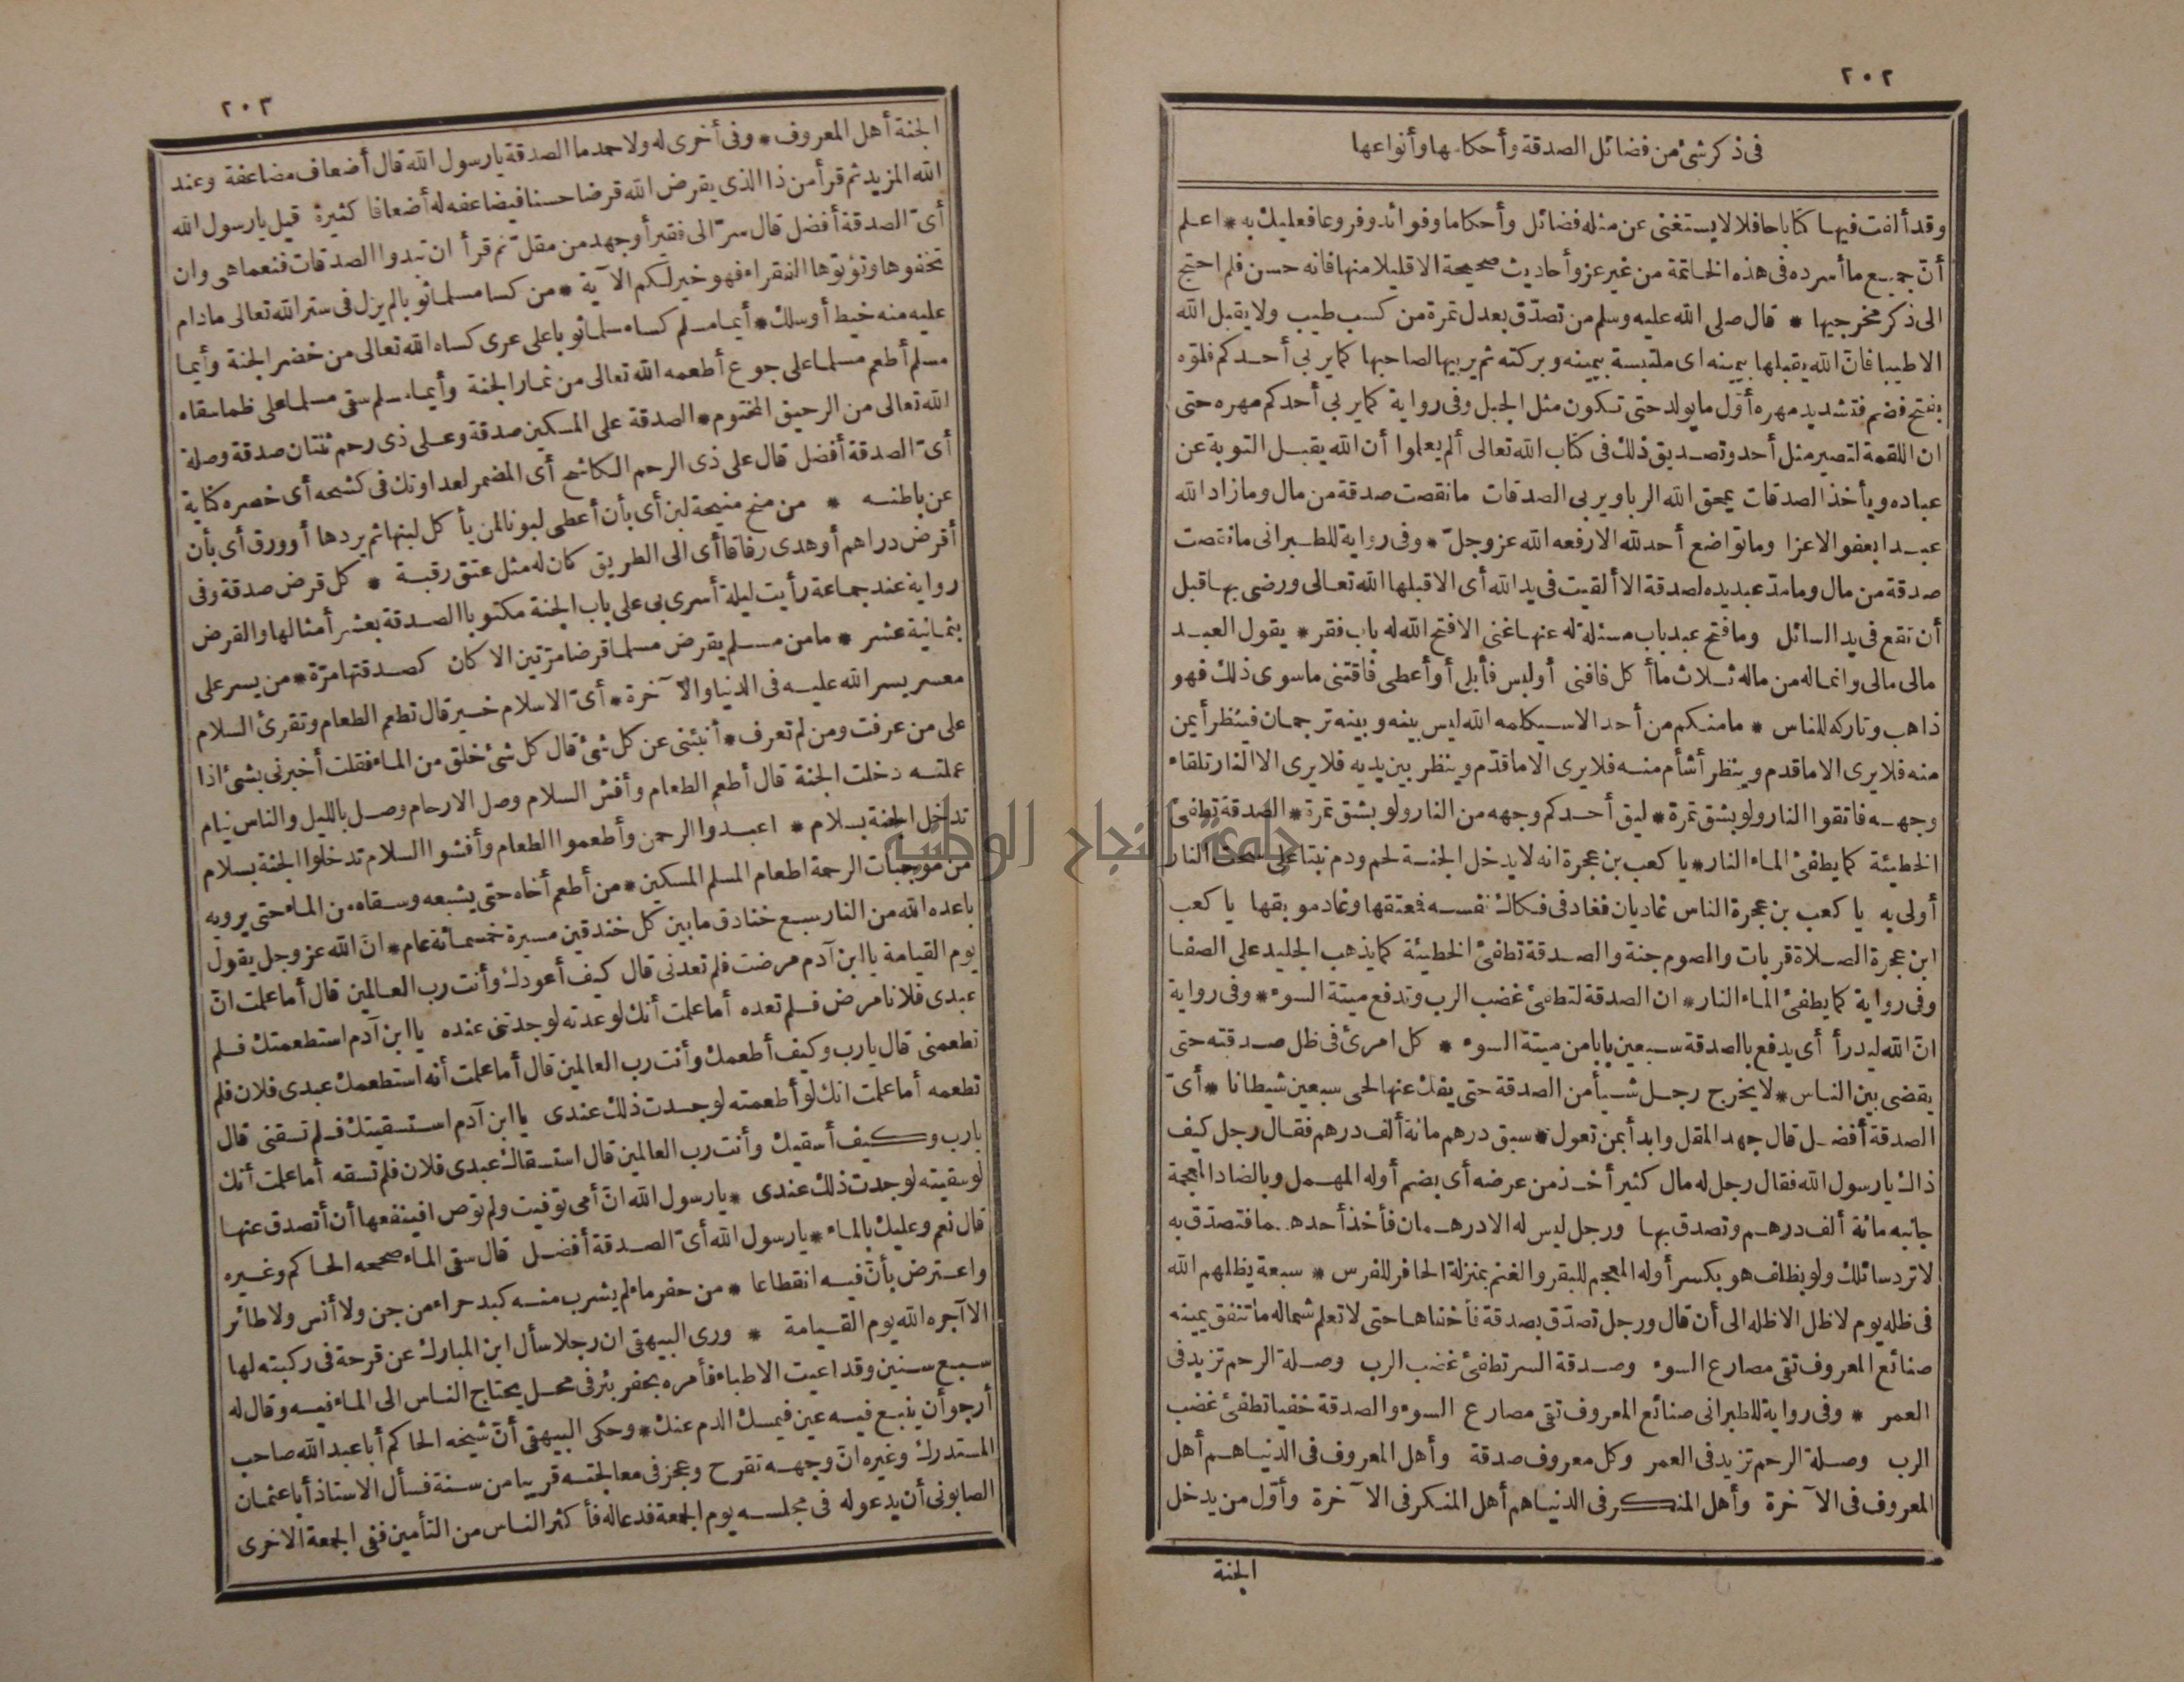 ٢٠٢
فى ذكر شئ من فضائل الصدقة وأحكامها وأنواعها
وقد ألفت فيها كتابا حافلا لا يستغنى عن مثله فضائل وأحكاما وفوائد وفروعا فعليك به * اعلم
أنّ جميع ما أسرده فى هذه الخاتمة من غير عزو أحاديث صحيحة الا قليلا منها فانه حسن فلم احتج
الى ذكر مخرجيها * قال صلى الله عليه وسلم من تصدّق بعدل تمرة من كسب طيب ولا يقبل الله
الا طيبا فانّ الله يقبلها بيمينه اى ملتبسة بيمينه وبركته ثم يربيها لصاحبها كما يربي أحدكم فلوّه
بفتح فضم فتشديد مهره أوّل ما يولد حتى تكون مثل الجبل وفى رواية كما يربي أحدكم مهره حتى
ان اللقمة لتصير مثل أحد وتصديق ذلك فى كتاب الله تعالى ألم يعلموا أن الله يقبل التوبة عن
عباده ويأخذ الصدقات يمحق الله الربا ويربى الصدقات ما نقصت صدقة من مال وما زاد الله
عبدا بعفو الا عزا وما تواضع أحد لله الا رفعه الله عز وجلّ * وفى رواية للطبرانى ما نقصت
صدقة من مال وما مدّ عبد يده لصدقة الا ألقيت فى يد الله أى الا قبلها الله تعالى ورضى بها قبل
أن تقع فى يد السائل وما فتح عبد باب مسئلة له عنها غنى الا فتح الله له باب فقر * يقول العبد
مالى مالى وانما له من ماله ثلاث ما أكل فافنى أو لبس فأبلى أو أعطى فاقتنى ما سوى ذلك فهو
ذاهب وتاركه للناس * ما منكم من أحد الا سيكلمه الله ليس بينه وبينه ترجمان فينظر أيمن
منه فلا يرى الا ما قدم وينظر أشأم منه فلا يرى الا ما قدّم وينظر بين يديه فلا يرى الا النار تلقاء
وجهه فاتقوا النار ولو بشق تمرة * ليق أحدكم وجهه من النار ولو بشق تمرة * الصدقة تطفئ
الخطيئة كما يطفئ الماء النار * يا كعب بن عجرة انه لا يدخل الجنة لحم ودم نبتا على سحت النار
أولى به يا كعب بن عجرة الناس غاديان فغاد فى فكاك نفسه فمعتقها وغاد موبقها يا كعب
ابن عجرة الصلاة قربات والصوم جنة والصدقة تطفئ الخطيئة كما يذهب الجليد على الصفا
وفى رواية كما يطفئ الماء النار * ان الصدقة لتطفئ غضب الرب وتدفع ميتة السوء * وفى رواية
انّ الله ليدرأ أى يدفع بالصدقة سبعين بابا من ميتة السوء * كل امرئ فى ظل صدقته حتى
يقضى بين الناس * لا يخرج رجل شيأ من الصدقة حتى يفك عنها لحى سبعين شيطانا * أىّ
الصدقة أفضل قال جهد المقل وابدأ بمن تعول * سبق درهم مائة ألف درهم فقال رجل كيف
ذاك يا رسول الله فقال رجل له مال كثير أخذ من عرضه أى بضم أوله المهمل وبالضاد المعجمة
جانبه مائة ألف درهم وتصدق بها ورجل ليس له الا درهمان فأخذ أحدهما فتصدّق به
لا ترد سائلك ولو بظلف هو بكسر أوله المعجم للبقر والغنم بمنزلة الحافر للفرس * سبعة يظلهم الله
فى ظله يوم لا ظل الا ظله الى أن قال ورجل تصدّق بصدقة فأخفاها حتى لا تعلم شماله ما تنفق يمينه
صنائع المعروف تقى مصارع السوء وصدقة السر تطفئ غضب الرب وصلة الرحم تزيد فى
العمر * وفى رواية للطبرانى صنائع المعروف تقى مصارع السوء والصدقة خفيا تطفئ غضب
الرب وصلة الرحم تزيد فى العمر وكل معروف صدقة وأهل المعروف فى الدنيا هم أهل
المعروف فى الآخرة وأهل المنكر فى الدنيا هم أهل المنكر فى الآخرة وأوّل من يدخل
الجنة
٢٠٣
الجنة أهل المعروف * وفى أخرى له ولاحمد ما الصدقة يا رسول الله قال أضعاف مضاعفة وعند
الله المزيد ثم قرأ من ذا الذى يقرض الله قرضا حسنا فيضاعفه له أضعافا كثيرة قيل يا رسول الله
أىّ الصدقة أفضل قال سرّ الى فقير أو جهد من مقلّ ثم قرأ ان تبدوا الصدقات فنعما هى وان
تخفوها وتؤتوها الفقراء فهو خير لكم الآية * من كسا مسلما ثوبا لم يزل فى ستر الله تعالى ما دام
عليه منه خيط أو سلك * أيما مسلم كسا مسلما ثوبا على عرى كساه الله تعالى من خضر الجنة وأيما
مسلم أطعم مسلما على جوع أطعمه الله تعالى من ثمار الجنة وأيما مسلم سقى مسلما على ظما سقاه
الله تعالى من الرحيق المختوم * الصدقة على المسكين صدقة وعلى ذى رحم ثنتان صدقة وصلة
أىّ الصدقة أفضل قال على ذى الرحم الكاشح أى المضمر لعداوتك فى كشحه أى خصره كناية
عن باطنه * من منح منيحة لبن أى بأن أعطى لبونا لمن يأكل لبنها ثم يردها أو ورق أى بأن
أقرض دراهم أو هدى رفاقا أى الى الطريق كان له مثل عتق رقبة * كل قرض صدقة وفى
رواية عند جماعة رأيت ليلة أسرى بى على باب الجنة مكتوبا الصدقة بعشر أمثالها والقرض
بثمانية عشر * ما من مسلم يقرض مسلما قرضا مرّتين الا كان كصدقتها مرّة * من يسر على
معسر يسر الله عليه فى الدنيا والآخرة * أىّ الاسلام خير قال تطعم الطعام وتقرئ السلام
على من عرفت ومن لم تعرف * أنبئنى عن كل شئ قال كل شئ خلق من الماء فقلت أخبرنى بشئ اذا
عملته دخلت الجنة قال أطعم الطعام وأفش السلام وصل الارحام وصل بالليل والناس نيام
تدخل الجنة بسلام * اعبدوا الرحمن وأطعموا الطعام وأفشوا السلام تدخلوا الجنة بسلام
من موجبات الرحمة اطعام المسلم المسكين * من أطعم أخاه حتى يشبعه وسقاه من الماء حتى يرويه
باعده الله من النار سبع خنادق ما بين كل خندقين مسيرة خمسمائة عام * انّ الله عز وجل يقول
يوم القيامة يا ابن آدم مرضت فلم تعدنى قال كيف أعودك وأنت رب العالمين قال أما علمت انّ
عبدى فلانا مرض فلم تعده أما علمت أنك لو عدته لوجدتنى عنده يا ابن آدم استطعمتك فلم
تطعمنى قال يا رب وكيف أطعمك وأنت رب العالمين قال أما علمت أنه استطعمك عبدى فلان فلم
تطعمه أما علمت انك لو أطعمته لوجدت ذلك عندى يا ابن آدم استسقيتك فلم تسقنى قال
يا رب وكيف أسقيك وأنت رب العالمين قال استسقاك عبدى فلان فلم تسقه أما علمت أنك
لو سقيته لوجدت ذلك عندى * يا رسول الله انّ أمى توفيت ولم توص أفينفعها أن أتصدق عنها
قال نعم وعليك بالماء * يا رسول الله أىّ الصدقة أفضل قال سقى الماء صححه الحاكم وغيره
واعترض بأنّ فيه انقطاعا * من حفر ماء لم يشرب منه كبد حراء من جن ولا أنس ولا طائر
الا آجره الله يوم القيامة * وروى البيهقى ان رجلا سأل ابن المبارك عن قرحة فى ركبته لها
سبع سنين وقد اعيت الاطباء فأمره بحفر بئر فى محل يحتاج الناس الى الماء فيه وقال له
أرجو أن ينبع فيه عين فيمسك الدم عنك * وحكى البيهقى أنّ شيخه الحاكم أبا عبد الله صاحب
المستدرك وغيره انّ وجهه تقرح وعجز فى معالجته قريبا من سنة فسأل الاستاذ أبا عثمان
الصابونى أن يدعو له فى مجلسه يوم الجمعة فدعا له فأكثر الناس من التأمين ففى الجمعة الاخرى
جامعة النجاح الوطنية